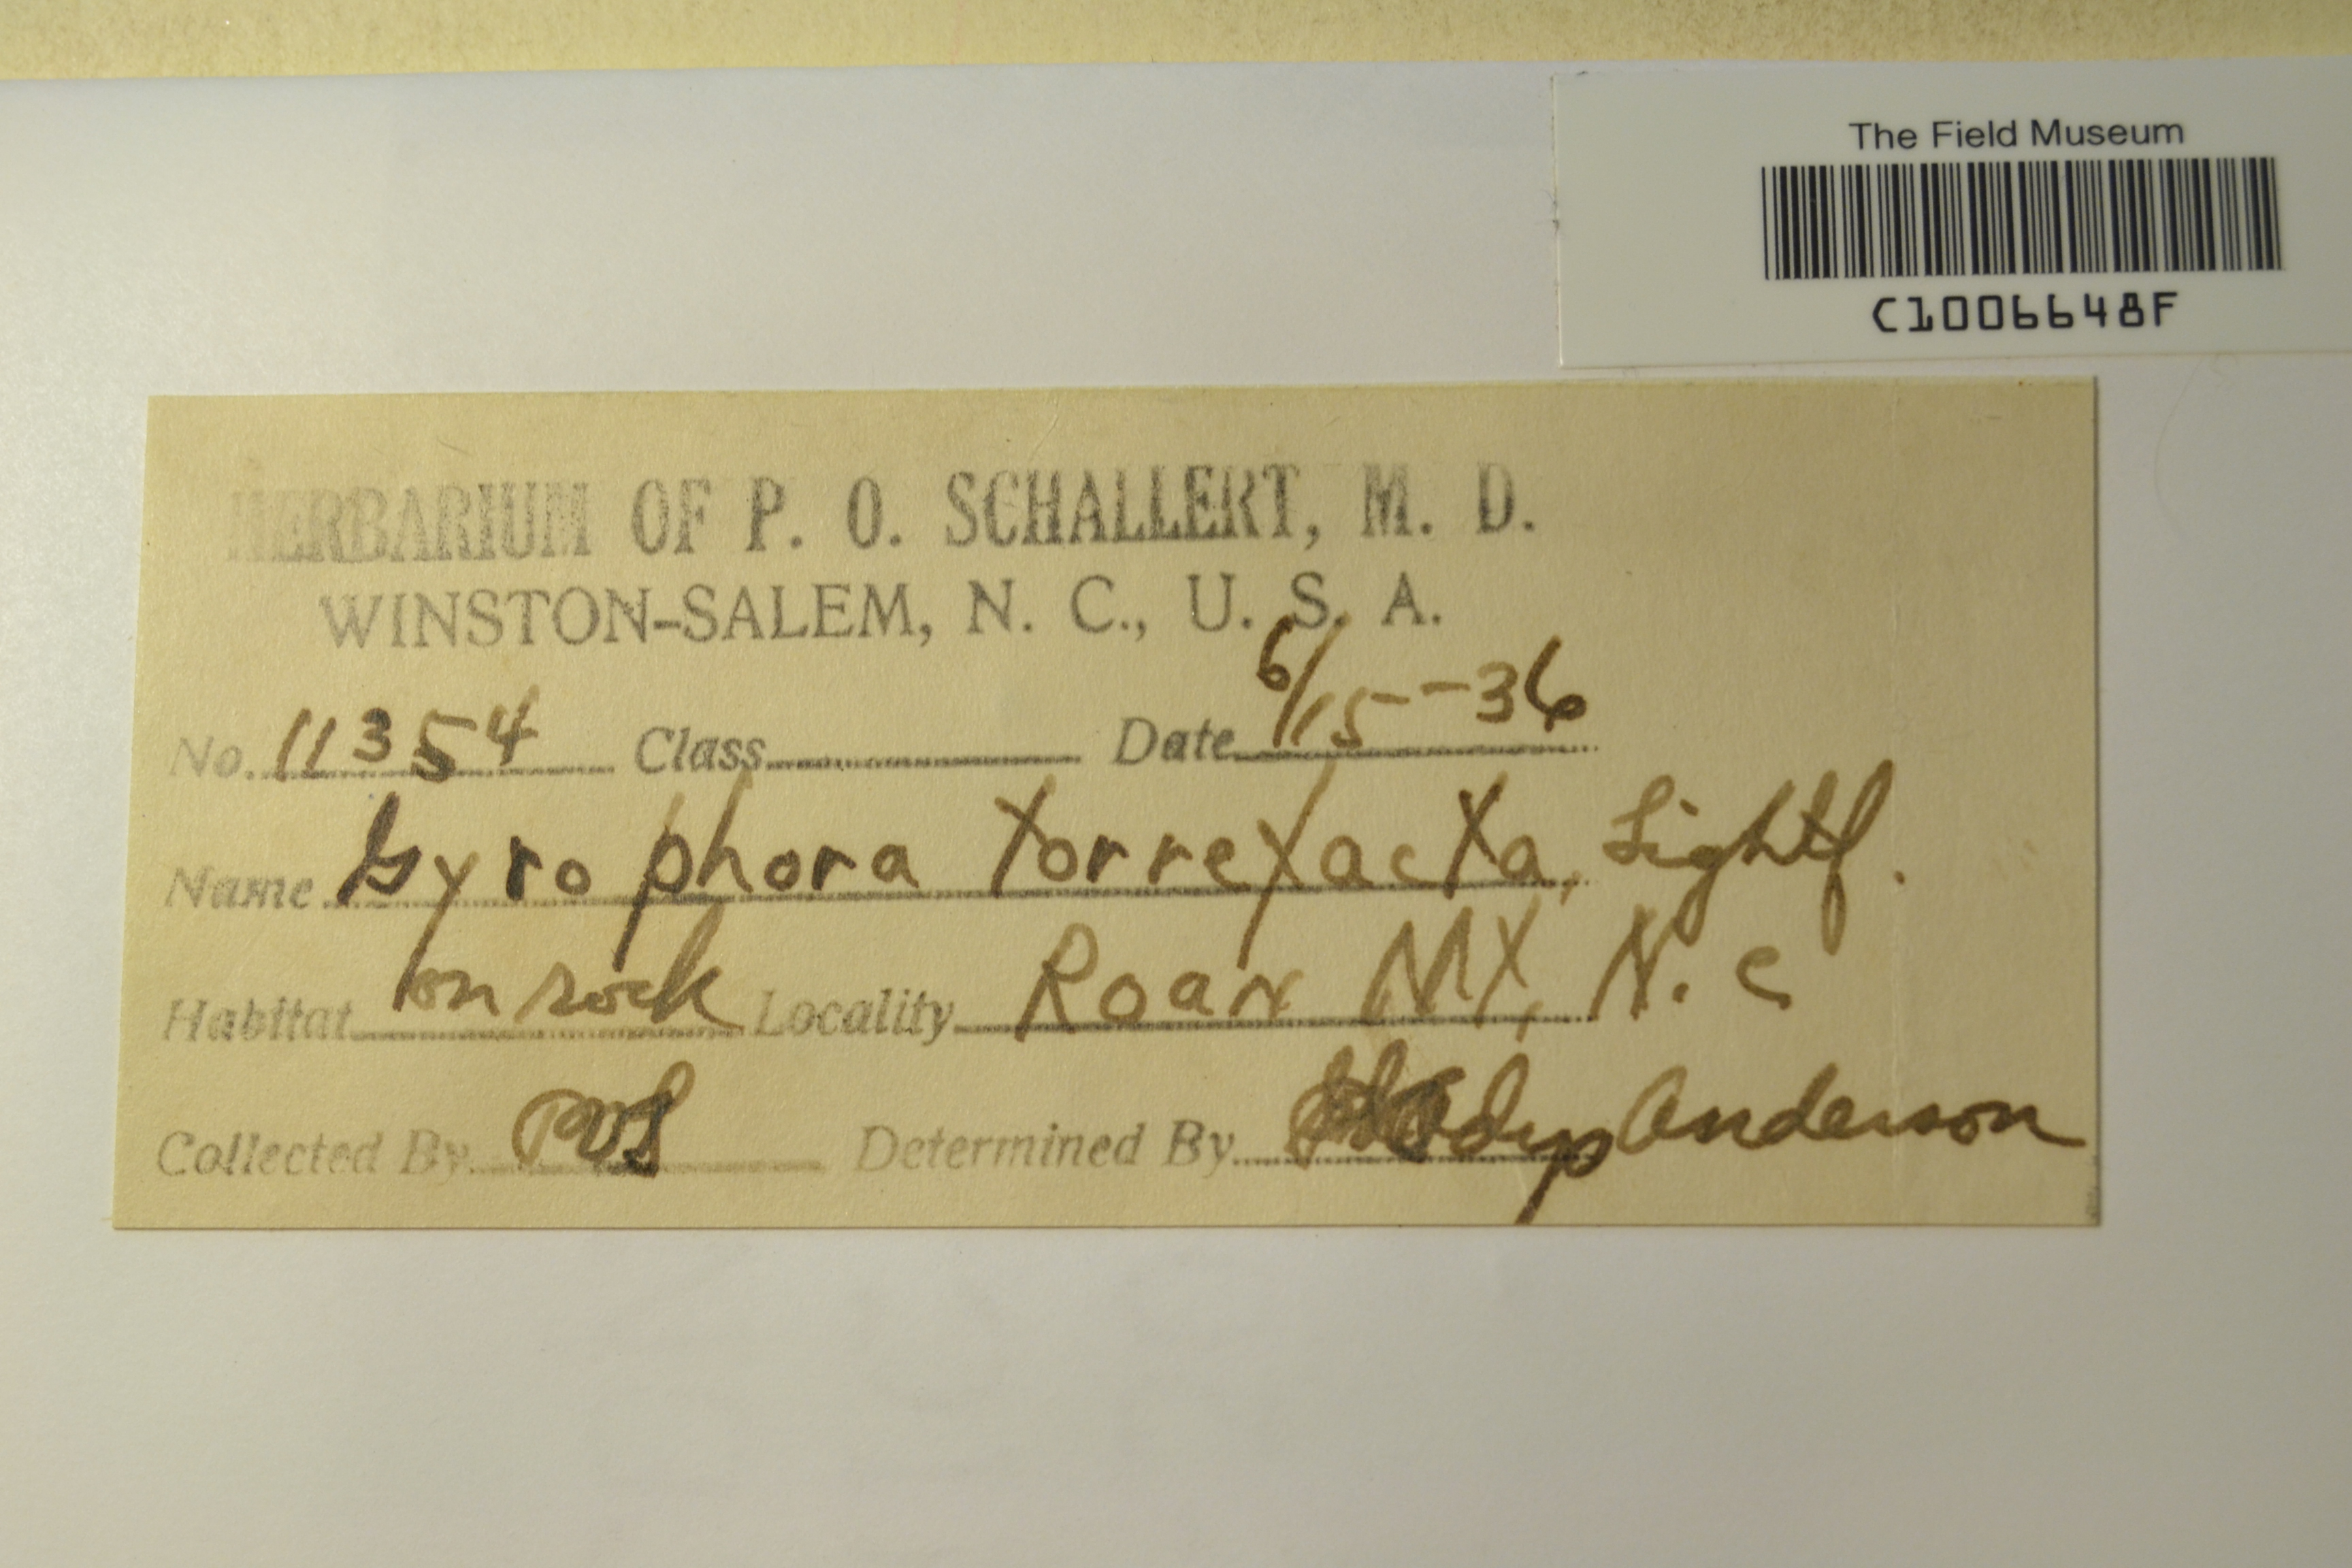 The Field Museum
C1006648F
HERBARIUM OF P. O. SCHALLERT, M. D.
WINSTON-SALEM, N. C., U. S. A.
No. 11354 Class Date 6/15-36
Name Gyrophora torrefacta, Lightf.
Habitat on rock Locality Roan Mt, N. C
Collected By POS Determined By Gladys Anderson